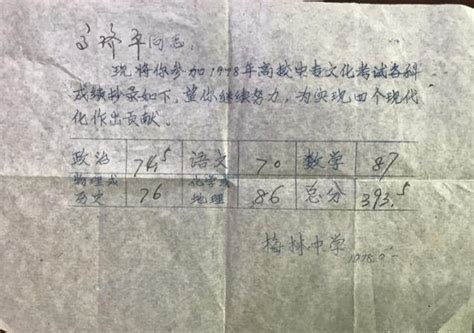 平同志:
现将你参加1978年高校中专文化考试各科
成绩抄录如下,望你继续努力,为实现四个现代
化作出贡献。
政治 74.5 语文 70 数学 87
物理或历史 76 化学或地理 86 总分 393.5
梅林中学
1978.